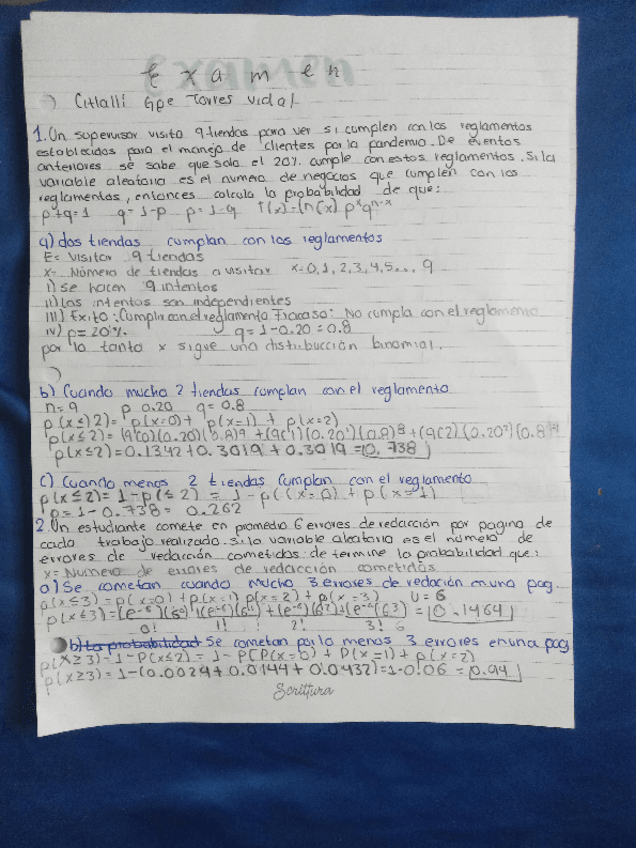 Examen
Citlalli Gpe Torres Vidal
1. Un supervisor visito 9 tiendas para ver si cumplen con los reglamentos
establecidos para el manejo de clientes por la pandemia. De eventos
anteriores se sabe que solo el 20% cumple con estos reglamentos. Si la
variable aleatoria es el numero de negocios que cumplen con los
reglamentos, entonces calcula la probabilidad de que:
p+q=1 q=1-p p=1-q f(x)=(nCx) p^x q^n-x
a) dos tiendas cumplan con los reglamentos
E= Visitar 9 tiendas
x= Número de tiendas a visitar x=0,1,2,3,4,5... 9
i) se hacen 9 intentos
ii) los intentos son independientes
iii) Exito: Cumplir con el reglamento Fracaso: No cumpla con el reglamento
iv) p=20% q=1-0.20=0.8
por lo tanto x sigue una distribucción binomial.
b) Cuando mucho 2 tiendas cumplan con el reglamento
n=9 p 0.20 q=0.8
p(x≤)2)= p(x=0)+ p(x=1) + p(x=2)
p(x≤2)=(9C0)(0.20)(0.8)^9 +(9C1)(0.20^1)(0.8)^8+(9C2)(0.20^2)(0.8)^9
p(x≤2)=0.1342+0.3019+0.3019=0.738
c) Cuando menos 2 tiendas cumplan con el reglamento
p(x≤2)=1-p(≤2) = 1-p((x=0) + p(x=1)
p=1-0.738= 0.262
2. Un estudiante comete en promedio 6 errores de redacción por pagina de
cada trabajo realizado. si la variable aleatoria es el número de
errores de redacción cometidos determine la probabilidad que:
x=Numero de errores de redacción cometidos
a) Se cometan cuando mucho 3 errores de redación en una pag.
p(x≤3)=p(x=0)+p(x=1)p(x=2)+p(x=3) U=6
p(x≤3)=(e^-6)(6^0)+(e^-6)(6^1)+(e^-6)(6^2)+(e^-6)(6^3)=0.1464
0! 1! 2! 3! 6
b) La probabilidad Se cometan por lo menos 3 errores en una pag
p(x≥3)=1-p(x≤2)= 1-P[P(x=0) + P(x=1)+p(x=2)
p(x≥3)=1-(0.0024+0.0144+0.0432)=1-0.06=0.94
Scrittura